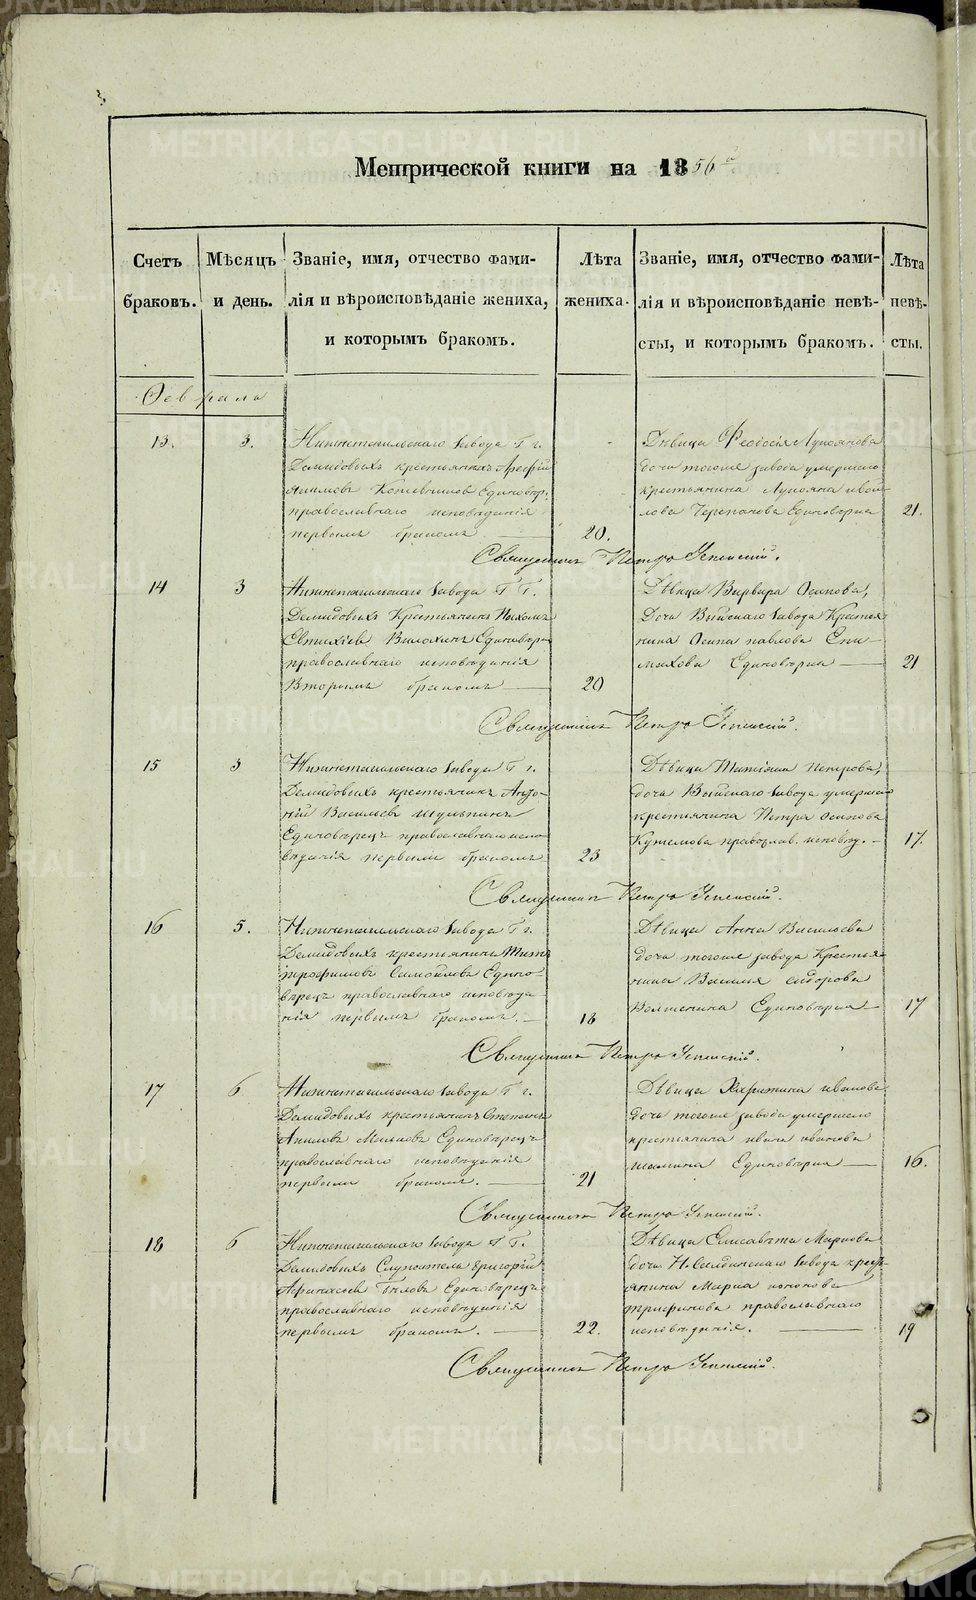 Метрической книги на 1856й
Счетъ браковъ.
Мѣсяцъ и день.
Званіе, имя, отчество фами-
лія и вѣроисповѣданіе жениха,
и которымъ бракомъ.
Лѣта жениха.
Званіе, имя, отчество фами-
лія и вѣроисповѣданіе невѣ-
сты, и которымъ бракомъ.
Лѣта невѣ-
сты.
Февраля
13.
3.
Нижнетагильскаго завода Г г.
Демидовыхъ крестьянинъ
Единовѣр.
православнаго исповѣданія
первымъ бракомъ
20.
Дѣвица Феодосія Лукоянова
дочь тогоже завода умершаго
крестьянина Лукояна
Черепанова Единовѣрка
21.
Священникъ Петръ Успенскій.
14
3
Нижнетагильскаго завода Г Г.
Демидовыхъ Крестьянинъ
Евтихіевъ Единовѣрц
православнаго исповѣданія
Вторымъ бракомъ
20
Дѣвица Варвара Осипова,
Дочь Выйскаго завода Крестья
нина Осипа павлова Ели-
Единовѣрка
21
Священникъ Петръ Успенскій.
15
3
Нижнетагильскаго завода Г г.
Демидовыхъ крестьянинъ Анто-
ній Васильевъ
Единовѣрецъ православнаго испо
вѣданія первымъ бракомъ
23
Дѣвица Татіана Петрова,
дочь Выйскаго завода умершаго
крестьянина Петра Осипова
православ. исповѣд.
17.
Священникъ Петръ Успенскій.
16
5.
Нижнетагильскаго завода Г г.
Демидовыхъ крестьянинъ
Самойловъ Едино-
вѣрецъ православнаго исповѣда
нія первымъ бракомъ.
18
Дѣвица Анна Васильева
дочь тогоже завода Крестья-
нина Василья сидорова
Единовѣрка
17
Священникъ Петръ Успенскій.
17
6
Нижнетагильскаго завода Г г.
Демидовыхъ крестьянинъ Степанъ
Единовѣрецъ
православнаго исповѣданія
первымъ бракомъ.
21
Дѣвица Харитина иванова
дочь тогоже завода умершаго
крестьянина ивана иванова
Единовѣрка
16.
Священникъ Петръ Успенскій.
18
6
Нижнетагильскаго завода Г Г.
Демидовыхъ Служитель Григорій
Афанасьевъ Бѣловъ Единовѣрецъ
православнаго исповѣданія
первымъ бракомъ.
22.
Дѣвица Елисавета Маркова
дочь Н. Салдинскаго завода крест
янина Марка
трифонова православнаго
исповѣданія.
19
Священникъ Петръ Успенскій.
METRIKI.GASO-URAL.RU